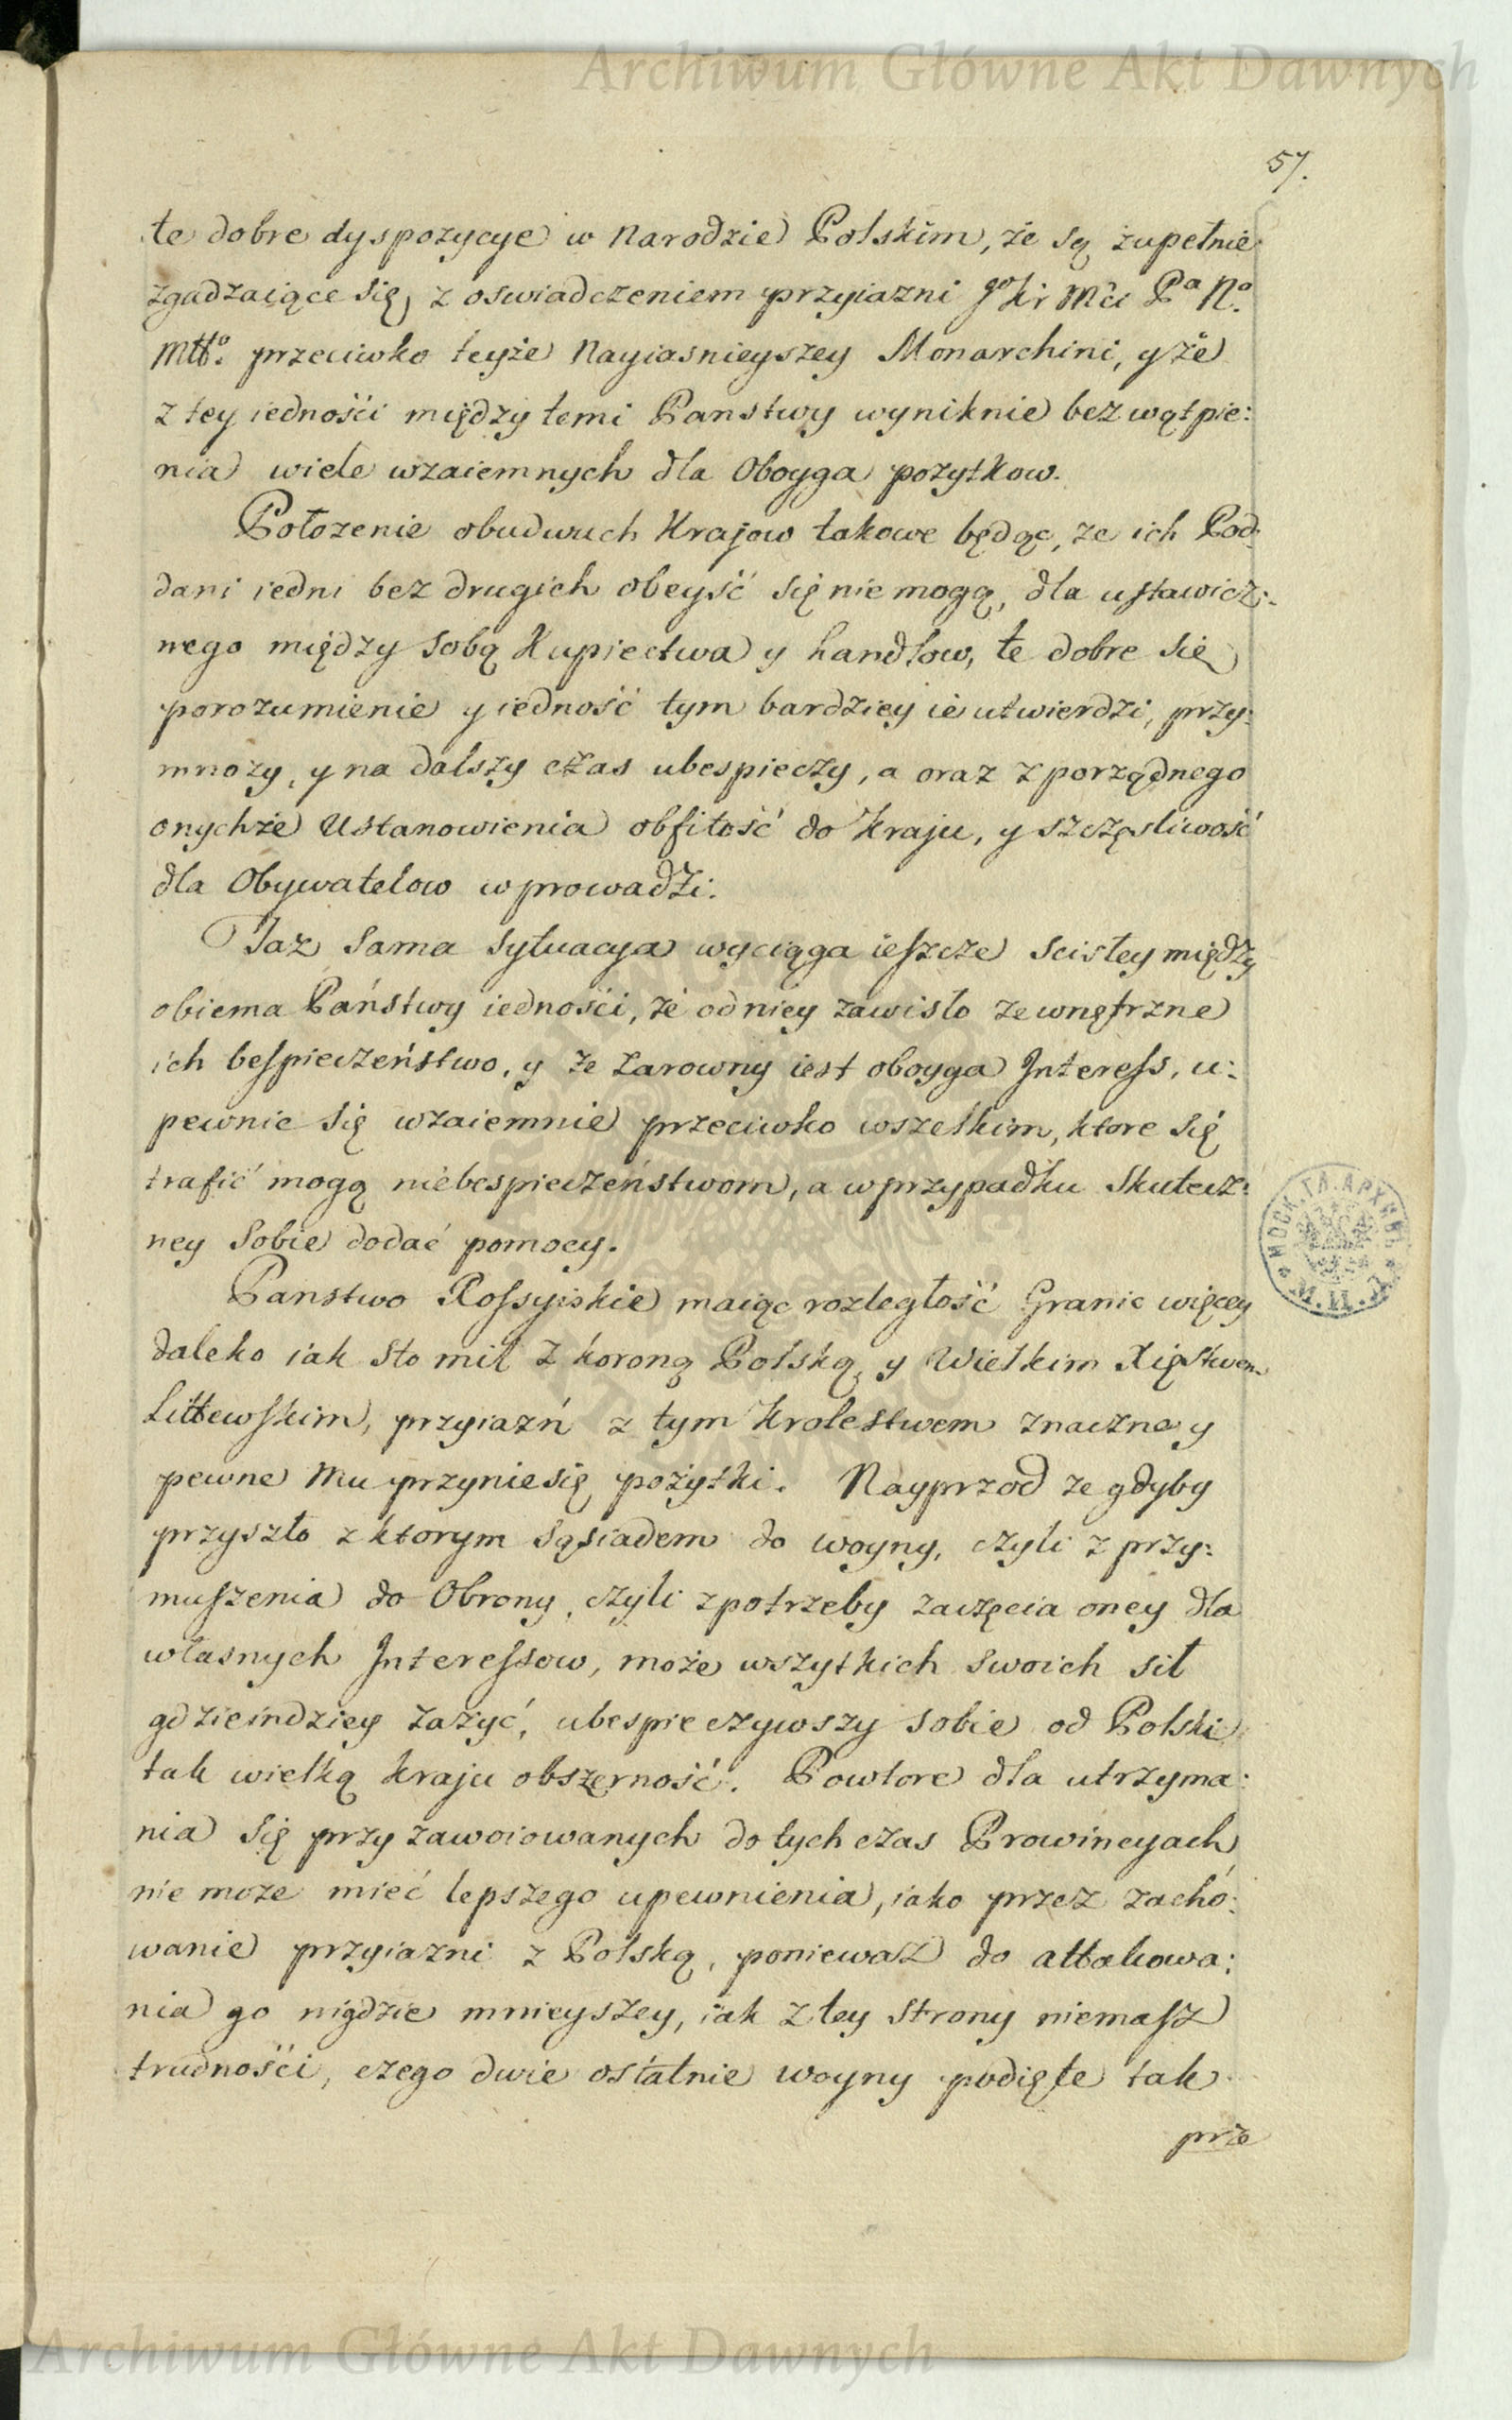 Archiwum Główne Akt Dawnych
57.
te dobre dyspozycye w Narodzie Polskim, że są zupełnie
zgadzaiące się, z oswiadczeniem przyiazni Jo Kr Mci Pa No
Mttо. przeciwko teyże Nayiasnieyszey Monarchini, y że
z tey iednośći między temi Panstwy wyniknie bez wątpie:
nia wiele wzaiemnych dla Oboyga pożytkow.
Położenie obudwuch Krajow takowe będąc, ze ich Pod:
dani iedni bez drugich obeyść się nie mogą, dla ustawicz:
nego między sobą Kupiectwa y handlow, te dobre się
porozumienie y iedność tym bardziey ie utwierdzi, przy:
mnozy, y na dalszy czas ubespieczy, a oraz z porządnego
onychże Ustanowienia obfitość do Kraju, y szczęsliwość
dla Obywatelow wprowadzi.
Taż sama sytuacya wyciąga ieszcze scisley między
obiema Państwy iednośći, że od niey zawisło zewnętrzne
ich bespieczeństwo, y że zarowny iest oboyga Interess, u:
pewnic się wzaiemnie przeciwko wszelkim, ktore się
trafić mogą niebespieczeństwom, a w przypadku skutecz:
ney sobie dodać pomocy.
Panstwo Rossyiskie maiąc rozległość Granic więcey
daleko iak sto mil z koroną Polską, y Wielkim Xięstwem
Littewskim, przyiazń z tym Krolestwem znaczne y
pewne mu przyniesię pożytki. Nayprzod ze gdyby
przyszło z ktorym sąsiadem do woyny, czyli z przy:
muszenia do Obrony, czyli z potrzeby zaczęcia oney dla
własnych Interessow, może wszytkich swoich sił
gdzieindziey zażyć, ubespieczywszy sobie od Polski
tak wielką kraju obszerność. Powtore dla utrzyma:
nia się przy zawoiowanych dotychczas Prowincyach
nie może mieć lepszego upewnienia, iako przez zacho:
wanie przyiazni z Polską, ponieważ do attakowa:
nia go nigdzie mnieyszey, iak z tey strony niemasz
trudnośći, czego dwie ostatnie woyny podięte tak
prze
МОСК. ГЛ. АРХИВЪ
М. И. Д.
Archiwum Główne Akt Dawnych